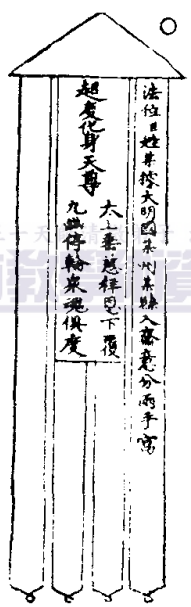 法位臣姓某據大明國某州某縣入齋意分兩手寫
太上垂慈祥恩下覆
超度化身天尊
九幽停輪眾魂俱度